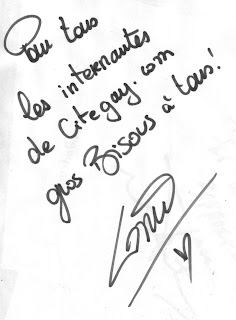 Pour tous
les internautes
de Citegay.com
gros Bisous à tous!